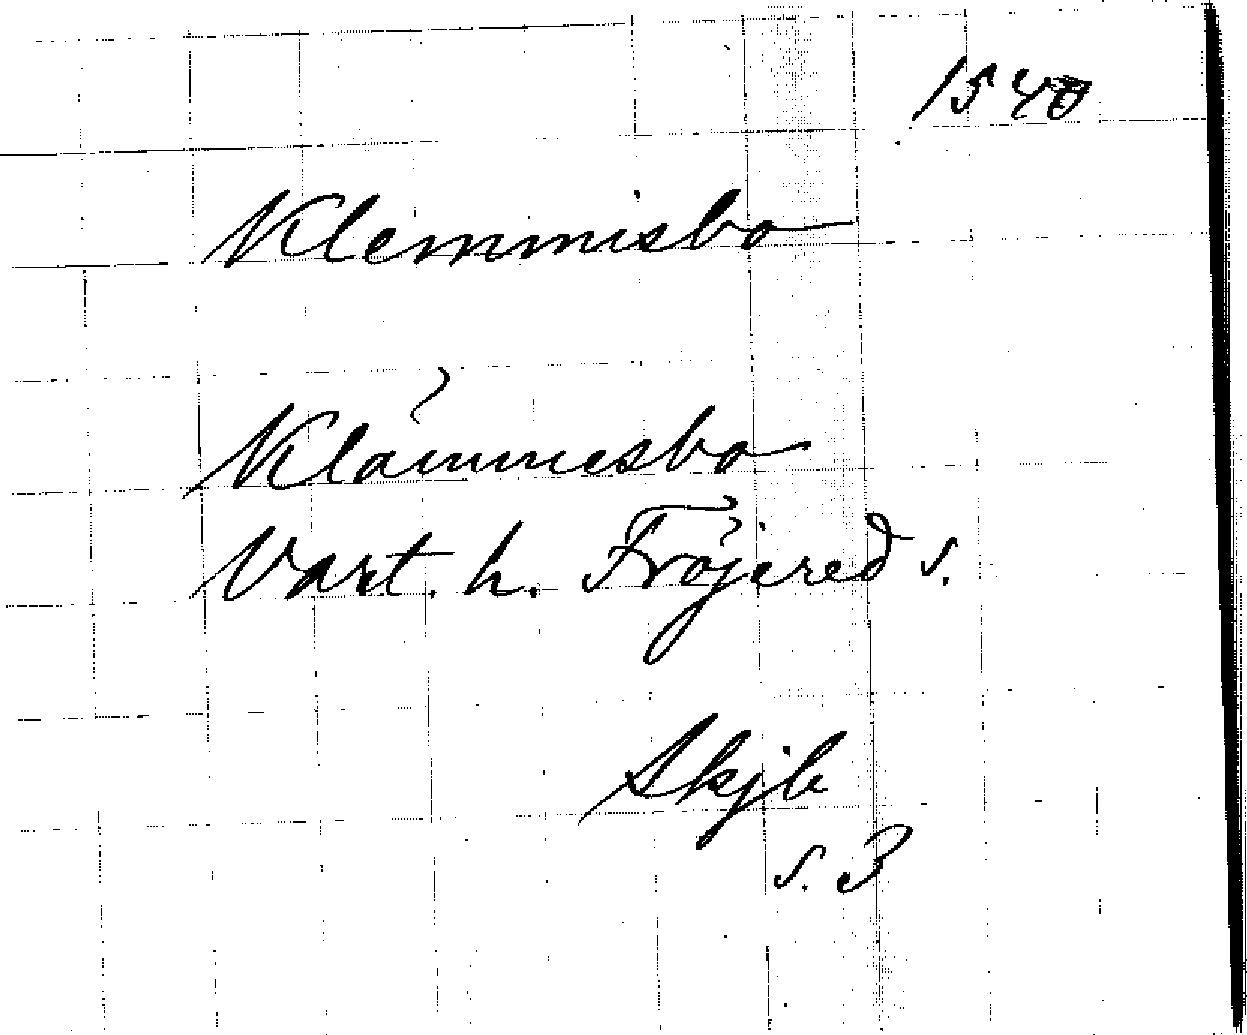 1540
Klemmisbo
Klämmesbo
Vart. h. Fröjered s.
Skjb
s. 3